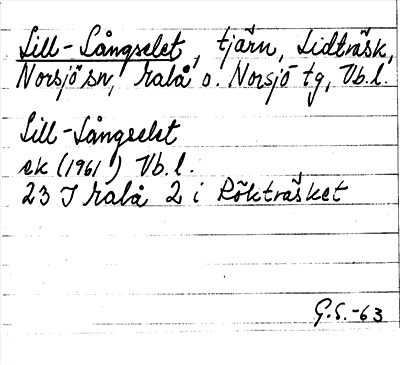 Lill-Långselet, tjärn, Lidträsk,
Norsjö sn, Malå o. Norsjö tg, Vb.l.
Lill-Långselet
ek (1961) Vb.l.
23 J Malå 2 i Rökträsket
G.S.-63